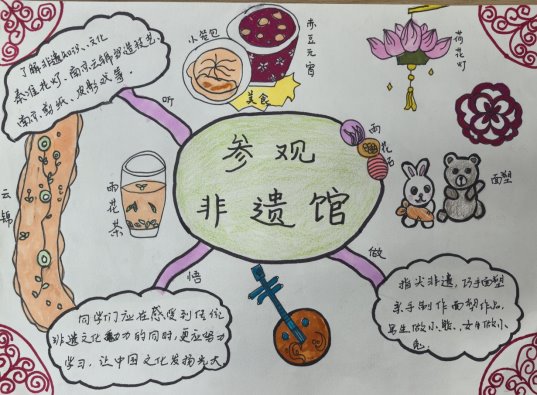 了解非遗
文化
秦淮花灯、南京云锦织造技艺、
南京剪纸、皮影戏等。
听
小笼包
赤豆元宵
美食
荷花灯
参观
非遗馆
雨花石
面塑
云锦
雨花茶
悟
做
同学们应在感受到传统
非遗文化魅力的同时，更应努力
学习，让中国文化发扬光大
指尖非遗，巧手面塑
亲手制作面塑作品，
男生做小熊，女生做小
兔。